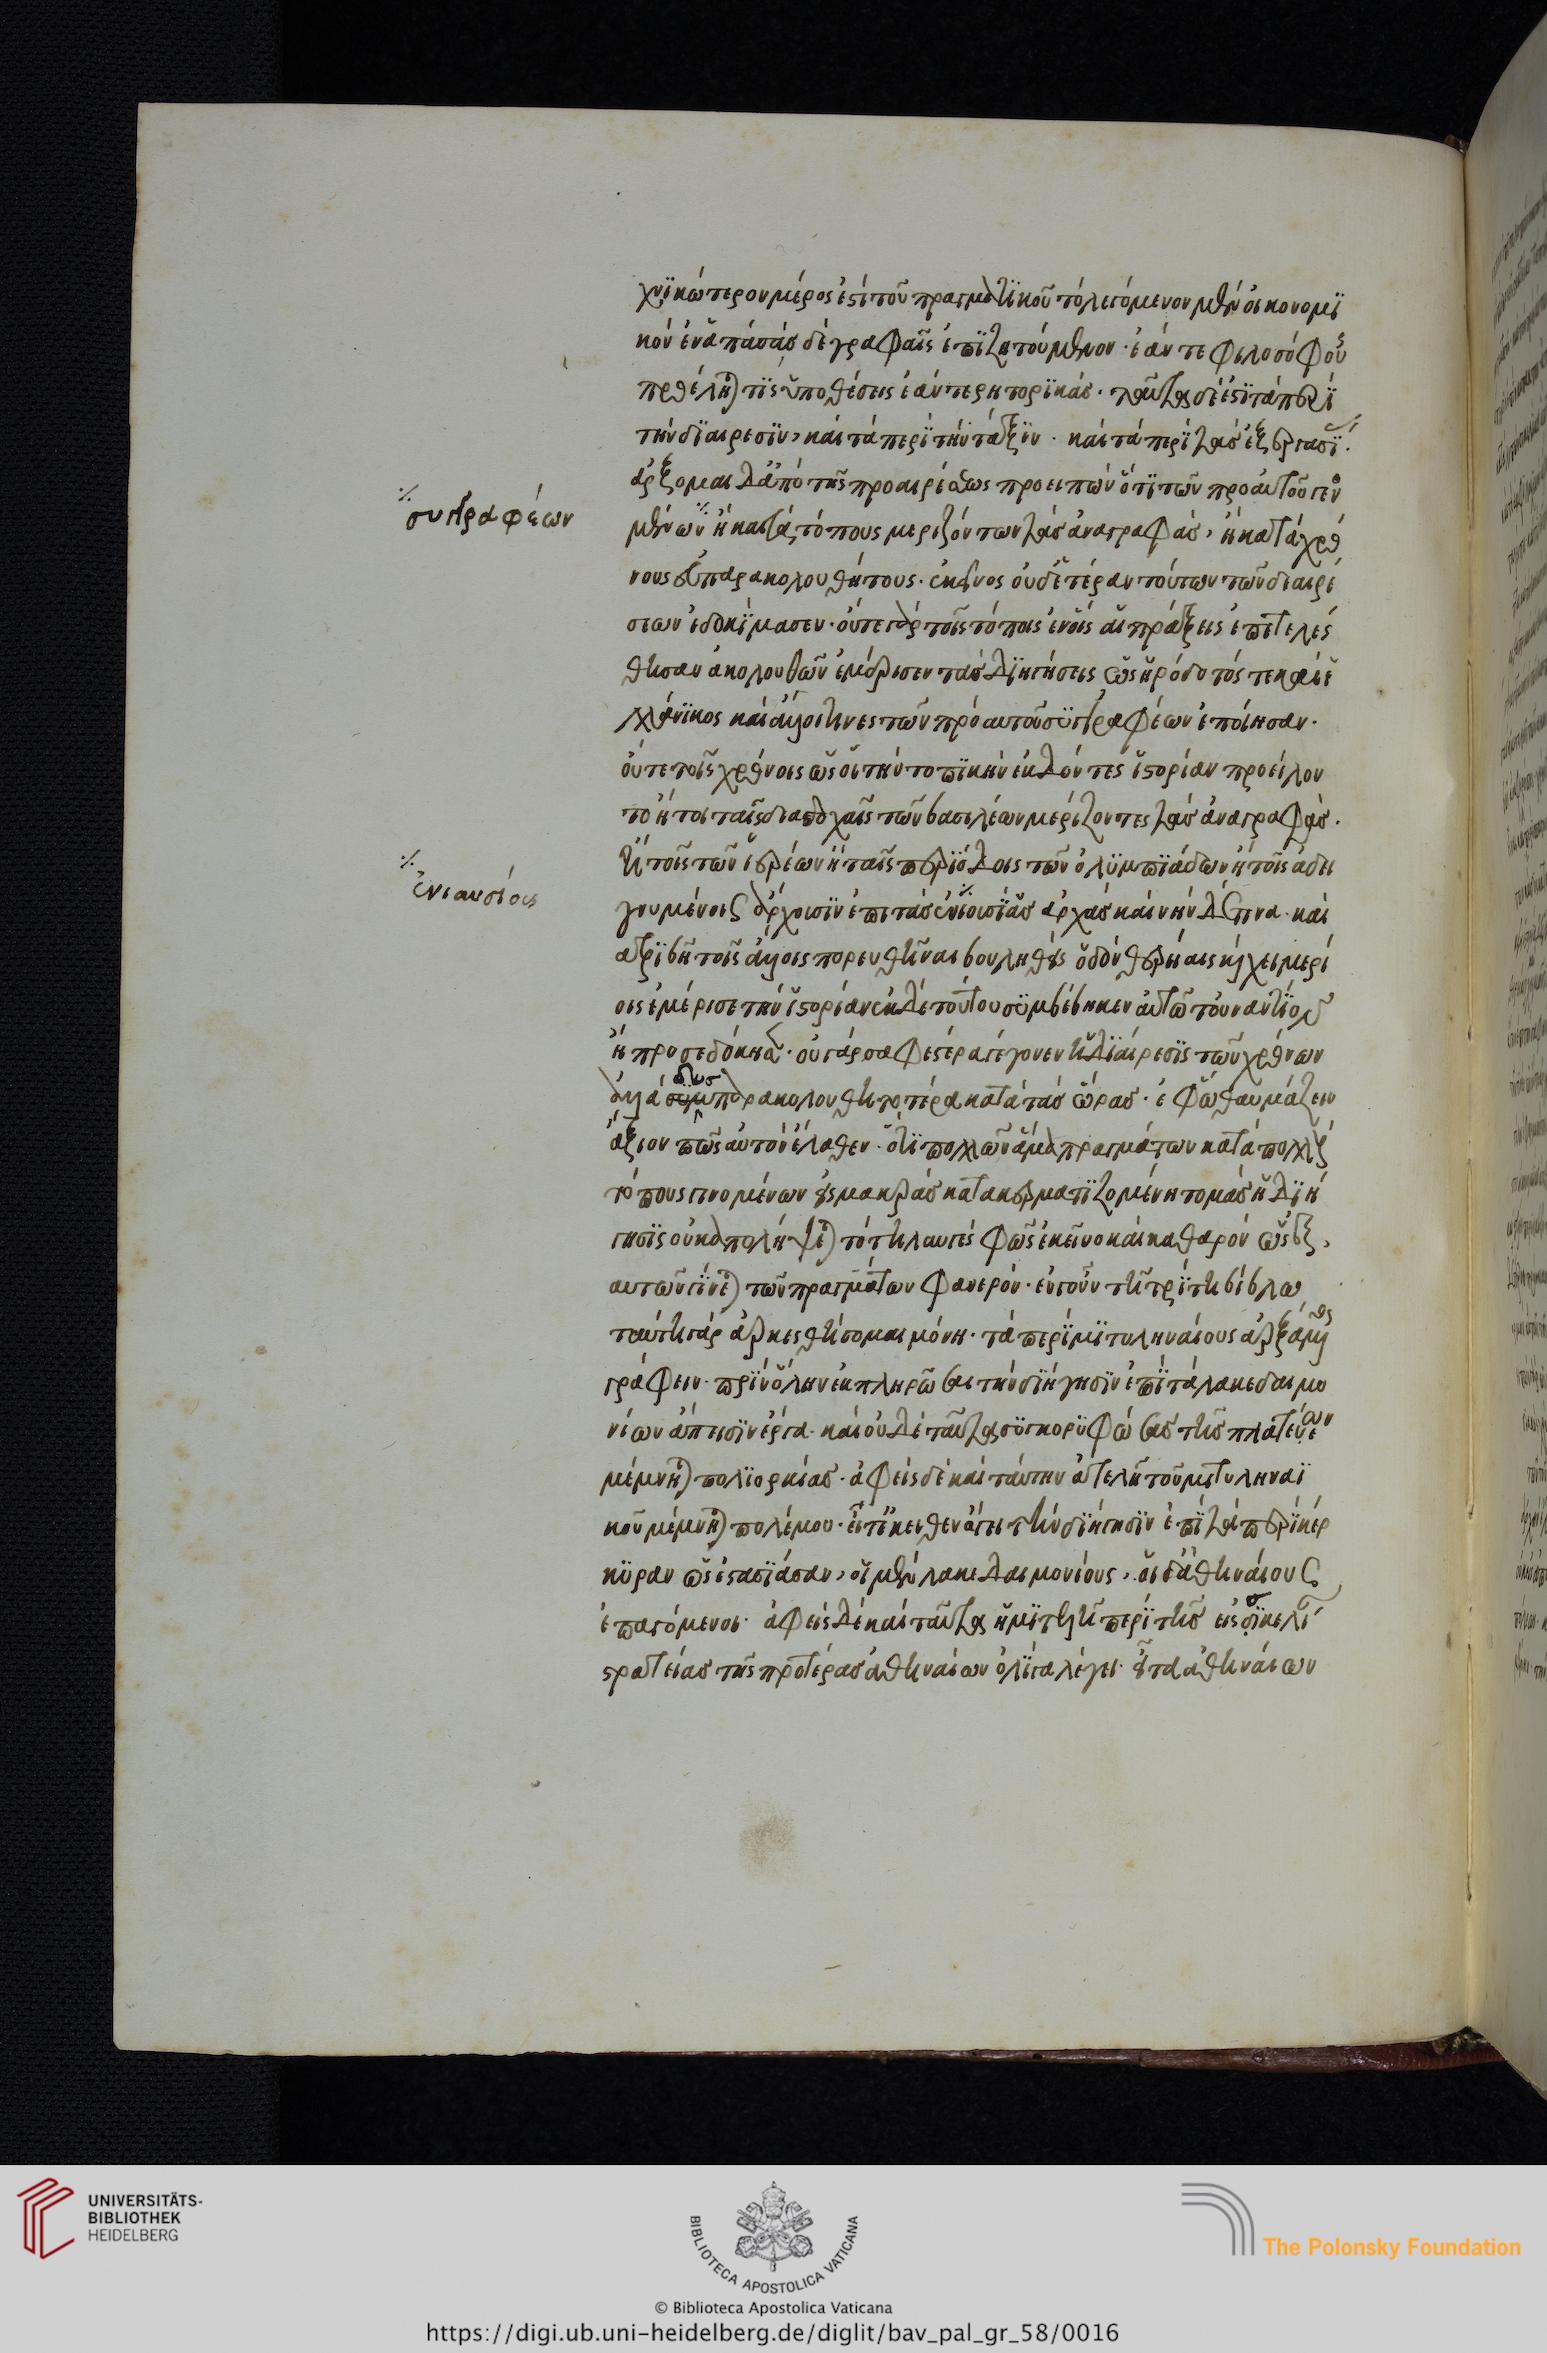 χνϊκώτερον μέρος ἐστὶ τοῦ πραγματϊκοῦ τὸ λεγόμενον μὲν οἰκονομϊ
κὸν ἐν ἁπάσαις δὲ γραφαῖς ἐπϊζητούμενον· ἐάν τε φιλοσόφους
προέληταί τϊς ὑποθέσεις ἐάν τε ῥητορϊκάς· ταῦτα δέ ἐστϊ τὰ περὶ
τὴν δϊαίρεσϊν, καὶ τὰ περὶ τὴν τάξϊν· καὶ τὰ περὶ τὰς ἐξεργασί.
ἄρξομαι δ' ἀπὸ τῆς προαιρέσεως προειπὼν ὅτϊ τῶν πρὸ αὐτοῦ γενο
μένων ἢ κατὰ τόπους μεριζόντων τὰς ἀναγραφὰς, ἢ κατὰ χρό
νους εὐπαρακολουθήτους· ἐκεῖνος οὐδετέραν τούτων τῶν διαιρέ
σεων ἐδοκϊμασεν· οὔτε γὰρ τοῖς τόποις ἐν οἷς αἱ πράξεις ἐπετελέσ
θησαν ἀκολουθῶν ἐμέρισεν τὰς δϊηγήσεις ὡς ἡρόδοτός τε καὶ ἑ
λλάνϊκος καὶ ἄλλοι τινες τῶν πρὸ αυτοῦ συγγραφέων ἐποίησαν·
οὔτε τοῖς χρόνοις ὡς οἱ τὴν τοπϊκὴν ἐκδόντες ἱστορίαν προείλον
το ἤτοι ταῖς διαδοχαῖς τῶν βασιλέων μερίζοντες τὰς ἀναγραφὰς·
ἢ τοῖς τῶν ἱερέων ἢ ταῖς περϊόδοις τῶν ὀλϋμπϊάδων ἢ τοῖς ἀδει
γνυμένοις ἄρχουσϊν ἐπι τὰς ἐνϊουσϊας ἀρχὰς καινὴν δέ τινα· καὶ
ατρϊβῆ τοῖς ἄλλοις πορευθῆναι βουληθεὶς ὁδὸν θερείαις καὶ χειμερί
οις ἐμέρισε τὴν ἱστορίαν ἐκ δὲ τούτου σϋμβέβηκεν αὐτῶ τοὐναντϊον
ἢ προσεδόκησε· οὐ γὰρ σαφεστέρα γέγονεν ἡ δϊαίρεσϊς τῶν χρόνων
ἀλλὰ δυσπαρακολουθητοτέρα κατὰ τὰς ὥρας· ἐφ' ὧ θαυμάζειν
ἄξιον πῶς αὐτὸν ἔλαθεν· ὅτϊ πολλῶν ἅμα πραγμάτων κατὰ πολλοὺς
τόπους γινομένων εἰς μακρὰς κατακερματϊζομένη τομὰς ἡ δϊή
γησϊς οὐκ ἀπολήψεται τὸ τηλαυγὲς φῶς ἐκεῖνο καὶ καθαρὸν ὡς ἐξ,
αυτῶν γϊνεται τῶν πραγμάτων φανερόν· ἐν γοῦν τῆ τρϊτη βίβλω
ταύτη γὰρ ἀρκεσθήσομαι μόνη· τὰ περὶ μϊτυληναίους ἀρξάμενος
γράφειν· πρϊν ὅλην ἐκπληρῶσαι τὴν δϊήγησϊν ἐπϊ τὰ λακεδαιμο
νίων ἄπεισϊν ἔργα· καὶ οὐδὲ ταῦτα σϋγκορϋφώσας τῆς πλατεέων
μέμνηται πολϊορκίας· ἀφεὶς δὲ καὶ ταύτην ἀτελῆ τοῦ μϊτυληναϊ
κοῦ μέμνηται πολέμου· εἶτ' ἐκεῖθεν ἄγει τὴν δϊήγησϊν ἐπϊ τὰ περὶ κέρ
κϋραν ὡς ἐστασϊασαν, οἱ μὲν λακεδαιμονίους, οἱ δ' ἀθηναίους
ἐπαγόμενοι· ἀφεὶς δὲ καὶ ταῦτα ἡμϊτελῆ περὶ τῆς εἰς σϊκελί
στρατείας τῆς προτέρας ἀθηναίων ὀλϊγα λέγει· εἶτα ἀθηναίων
συγγραφέων
ἐνιαυσίοις
UNIVERSITÄTS-
BIBLIOTHEK
HEIDELBERG
BIBLIOTECA APOSTOLICA VATICANA
The Polonsky Foundation
© Biblioteca Apostolica Vaticana
https://digi.ub.uni-heidelberg.de/diglit/bav_pal_gr_58/0016